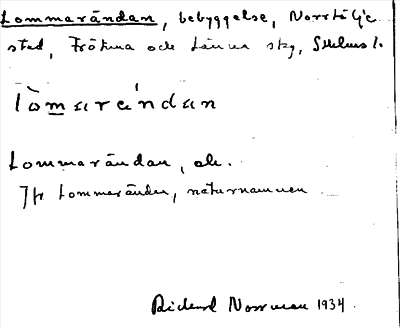 Lommarändan, bebyggelse, Norrtälje
stad, Frötuna och Länna skg, Sthlms l.
lòmaréndan
Lommarändan, ab.
Jfr Lommaränden, naturnamnen
Rickard Norrman 1934